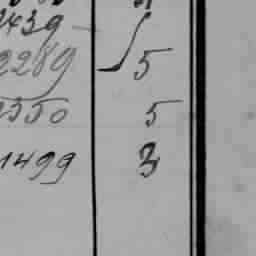 2439
2289 5
2350 5
1499 3